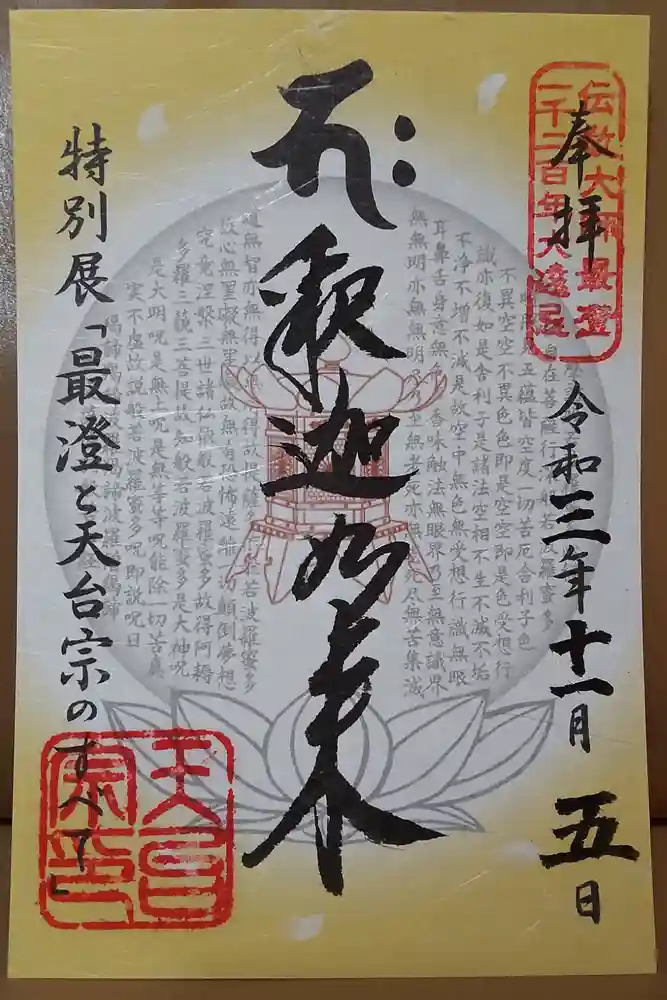 伝教大師最澄
一千二百年大遠忌
奉拝
令和三年十一月五日
自在菩薩行深般若波羅蜜多
照見五蘊皆空度一切苦厄舎利子色
不異空空不異色色即是空空即是色受想行
識亦復如是舎利子是諸法空相不生不滅不垢
不浄不増不減是故空中無色無受想行識無眼
耳鼻舌身意無色香味触法無眼界乃至無意識界
無無明亦無無明尽乃至無老死亦無老死尽無苦集滅
釈迦如来
道無智亦無得以無所得故菩提般若波羅蜜多
故心無罣礙無罣礙故無有恐怖遠離一切顛倒夢想
究竟涅槃三世諸仏依般若波羅蜜多故得阿耨
多羅三藐三菩提故知般若波羅蜜多是大神呪
是大明呪是無上呪是無等等呪能除一切苦真
実不虚故説般若波羅蜜多呪即説呪日
羯諦羯諦波羅羯諦波羅僧羯諦
特別展「最澄と天台宗のすべて」
天台宗印